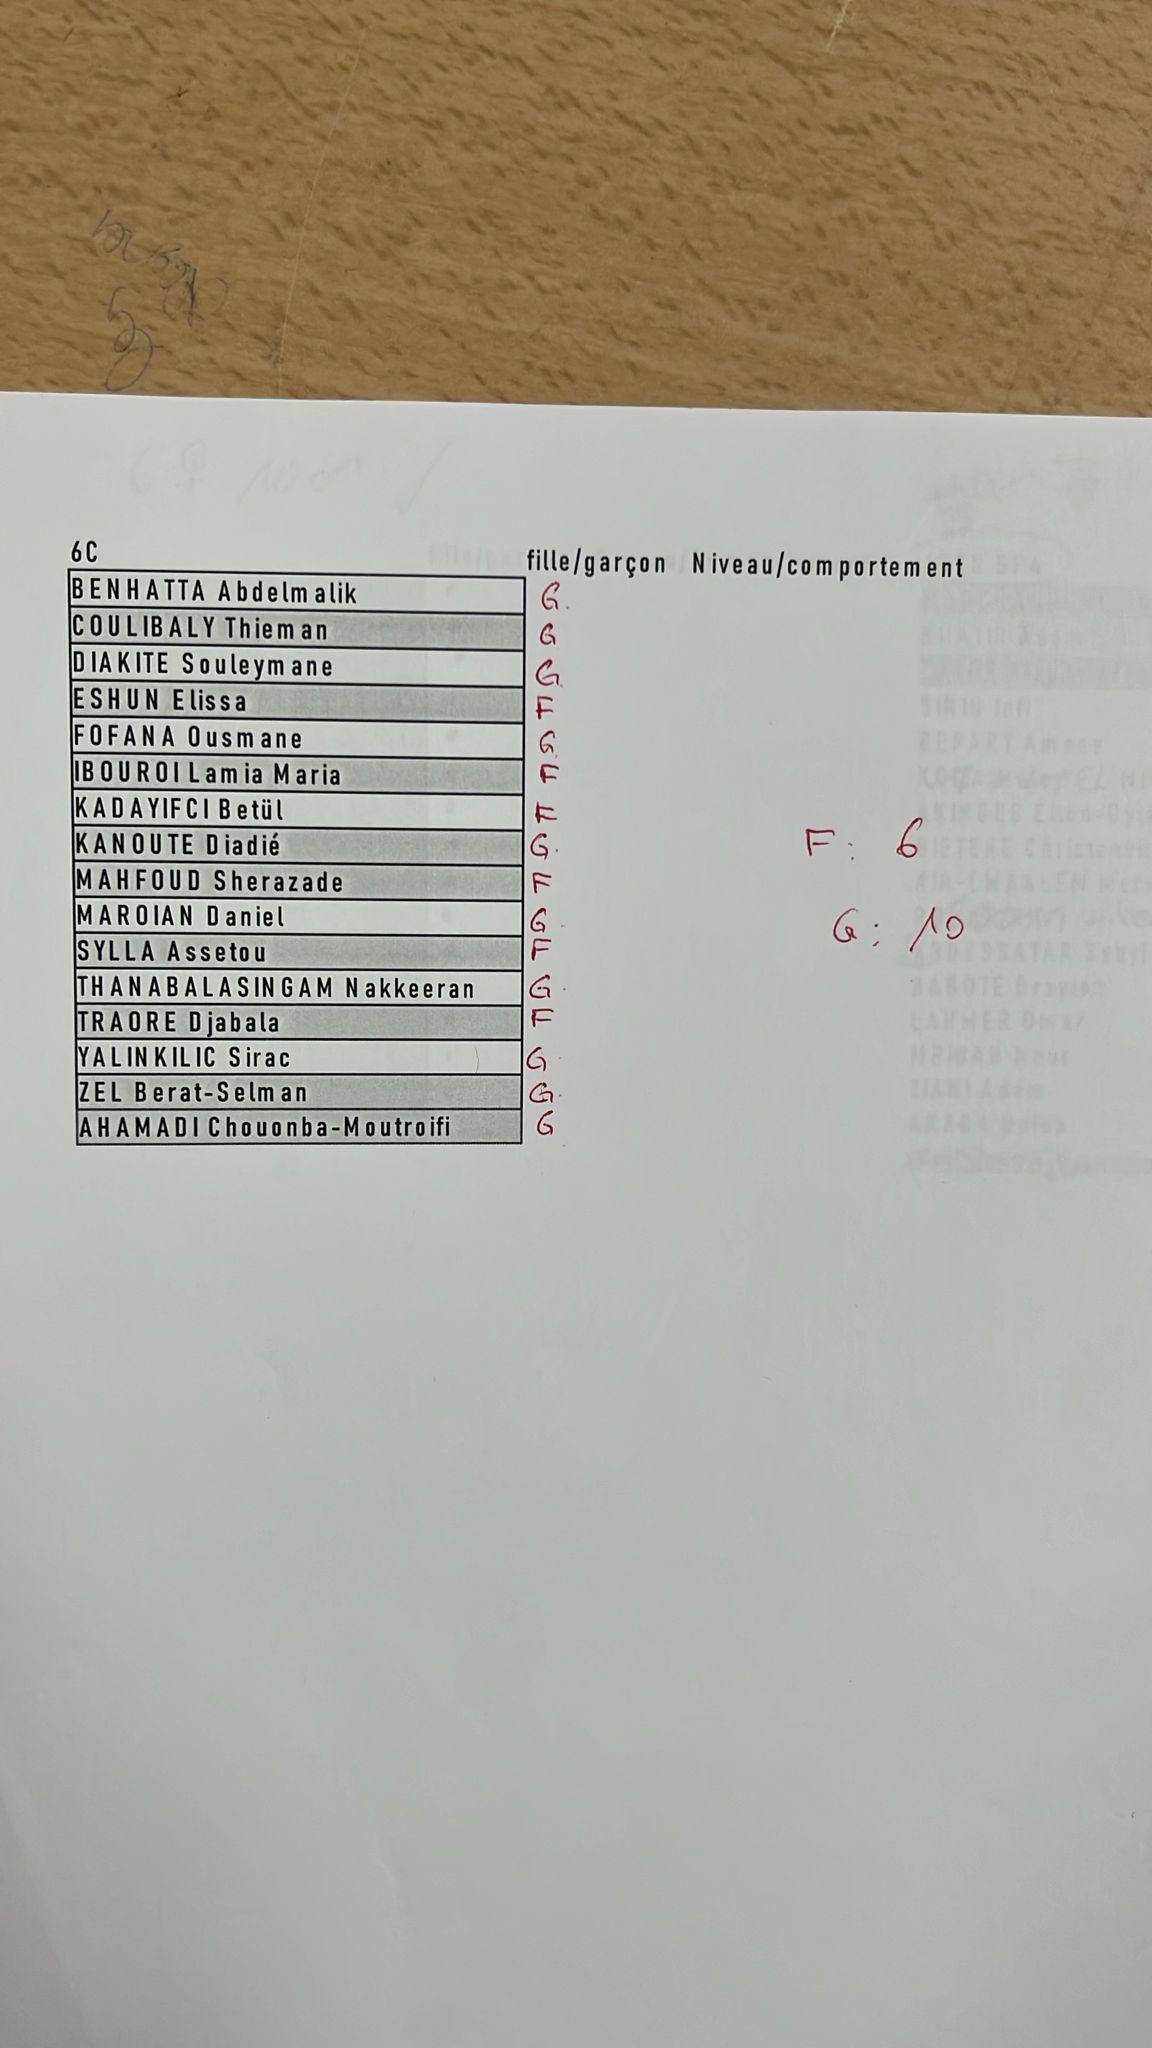 6C fille/garçon Niveau/comportement
BENHATTA Abdelmalik G.
COULIBALY Thieman G
DIAKITE Souleymane G.
ESHUN Elissa F
FOFANA Ousmane G.
IBOUROI Lamia Maria F
KADAYIFCI Betül F
KANOUTE Diadié G.
MAHFOUD Sherazade F
MAROIAN Daniel G.
SYLLA Assetou F
THANABALASINGAM Nakkeeran G.
TRAORE Djabala F
YALINKILIC Sirac G
ZEL Berat-Selman G.
AHAMADI Chouonba-Moutroifi G
F: 6
G: 10